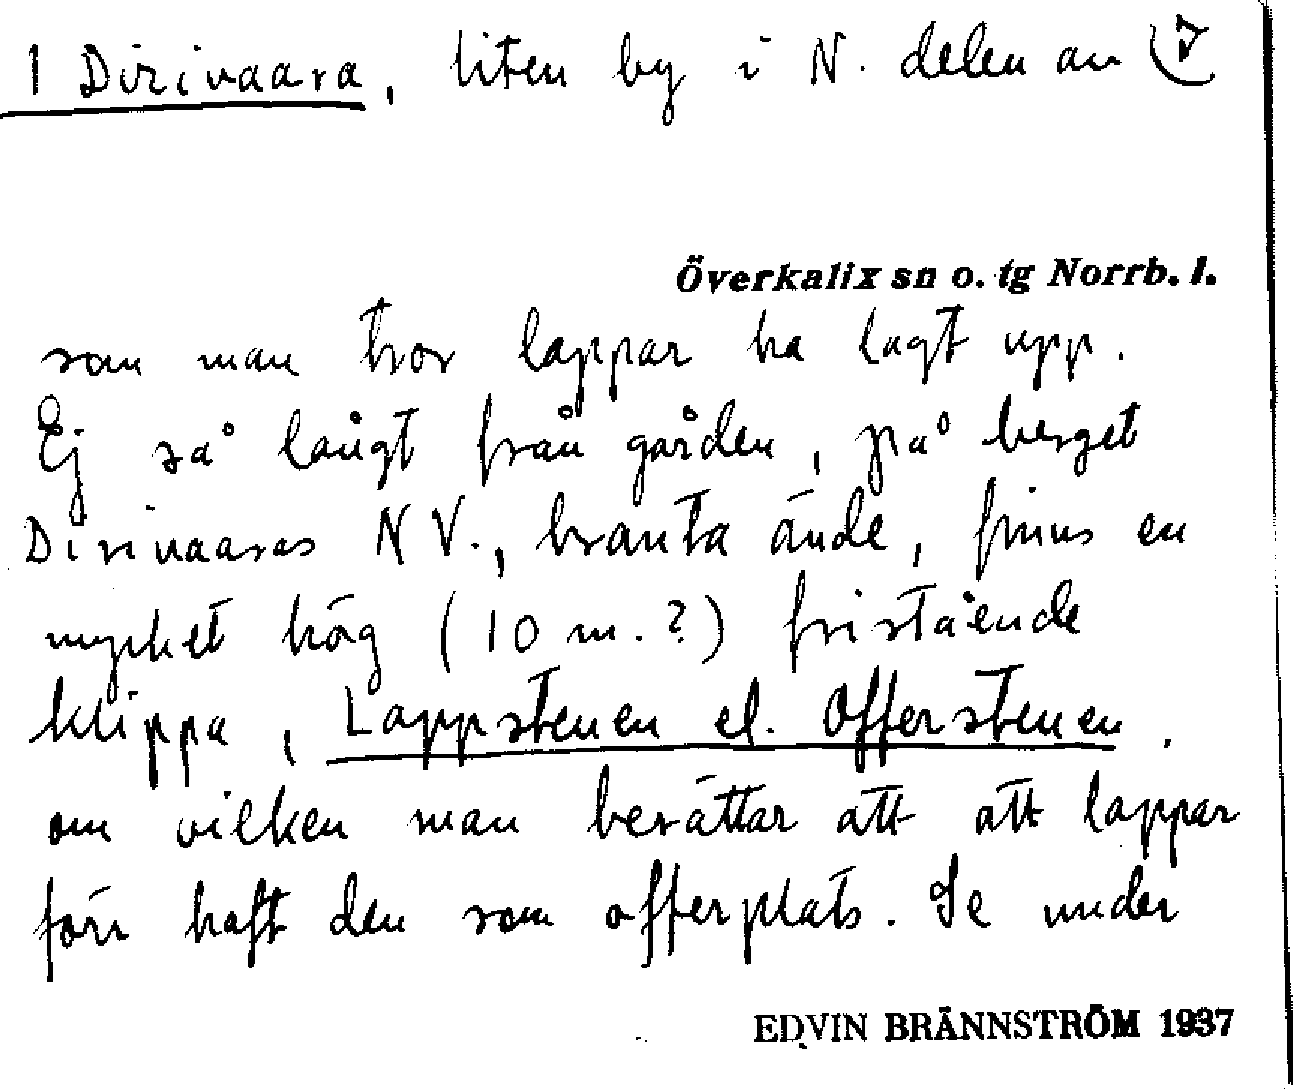 1 Dirivaara, liten by i N. delen av
Överkalix sn o. tg Norrb. l.
som man tror lappar ha lagt upp.
Ej så långt från gården, på berget
Dirivaaras NV., branta ände, finns en
mycket hög (10 m.?) fristående
klippa, Lappstenen el. Offerstenen,
om vilken man berättar att att lappar
förr haft den som offerplats. Se under
EDVIN BRÄNNSTRÖM 1937